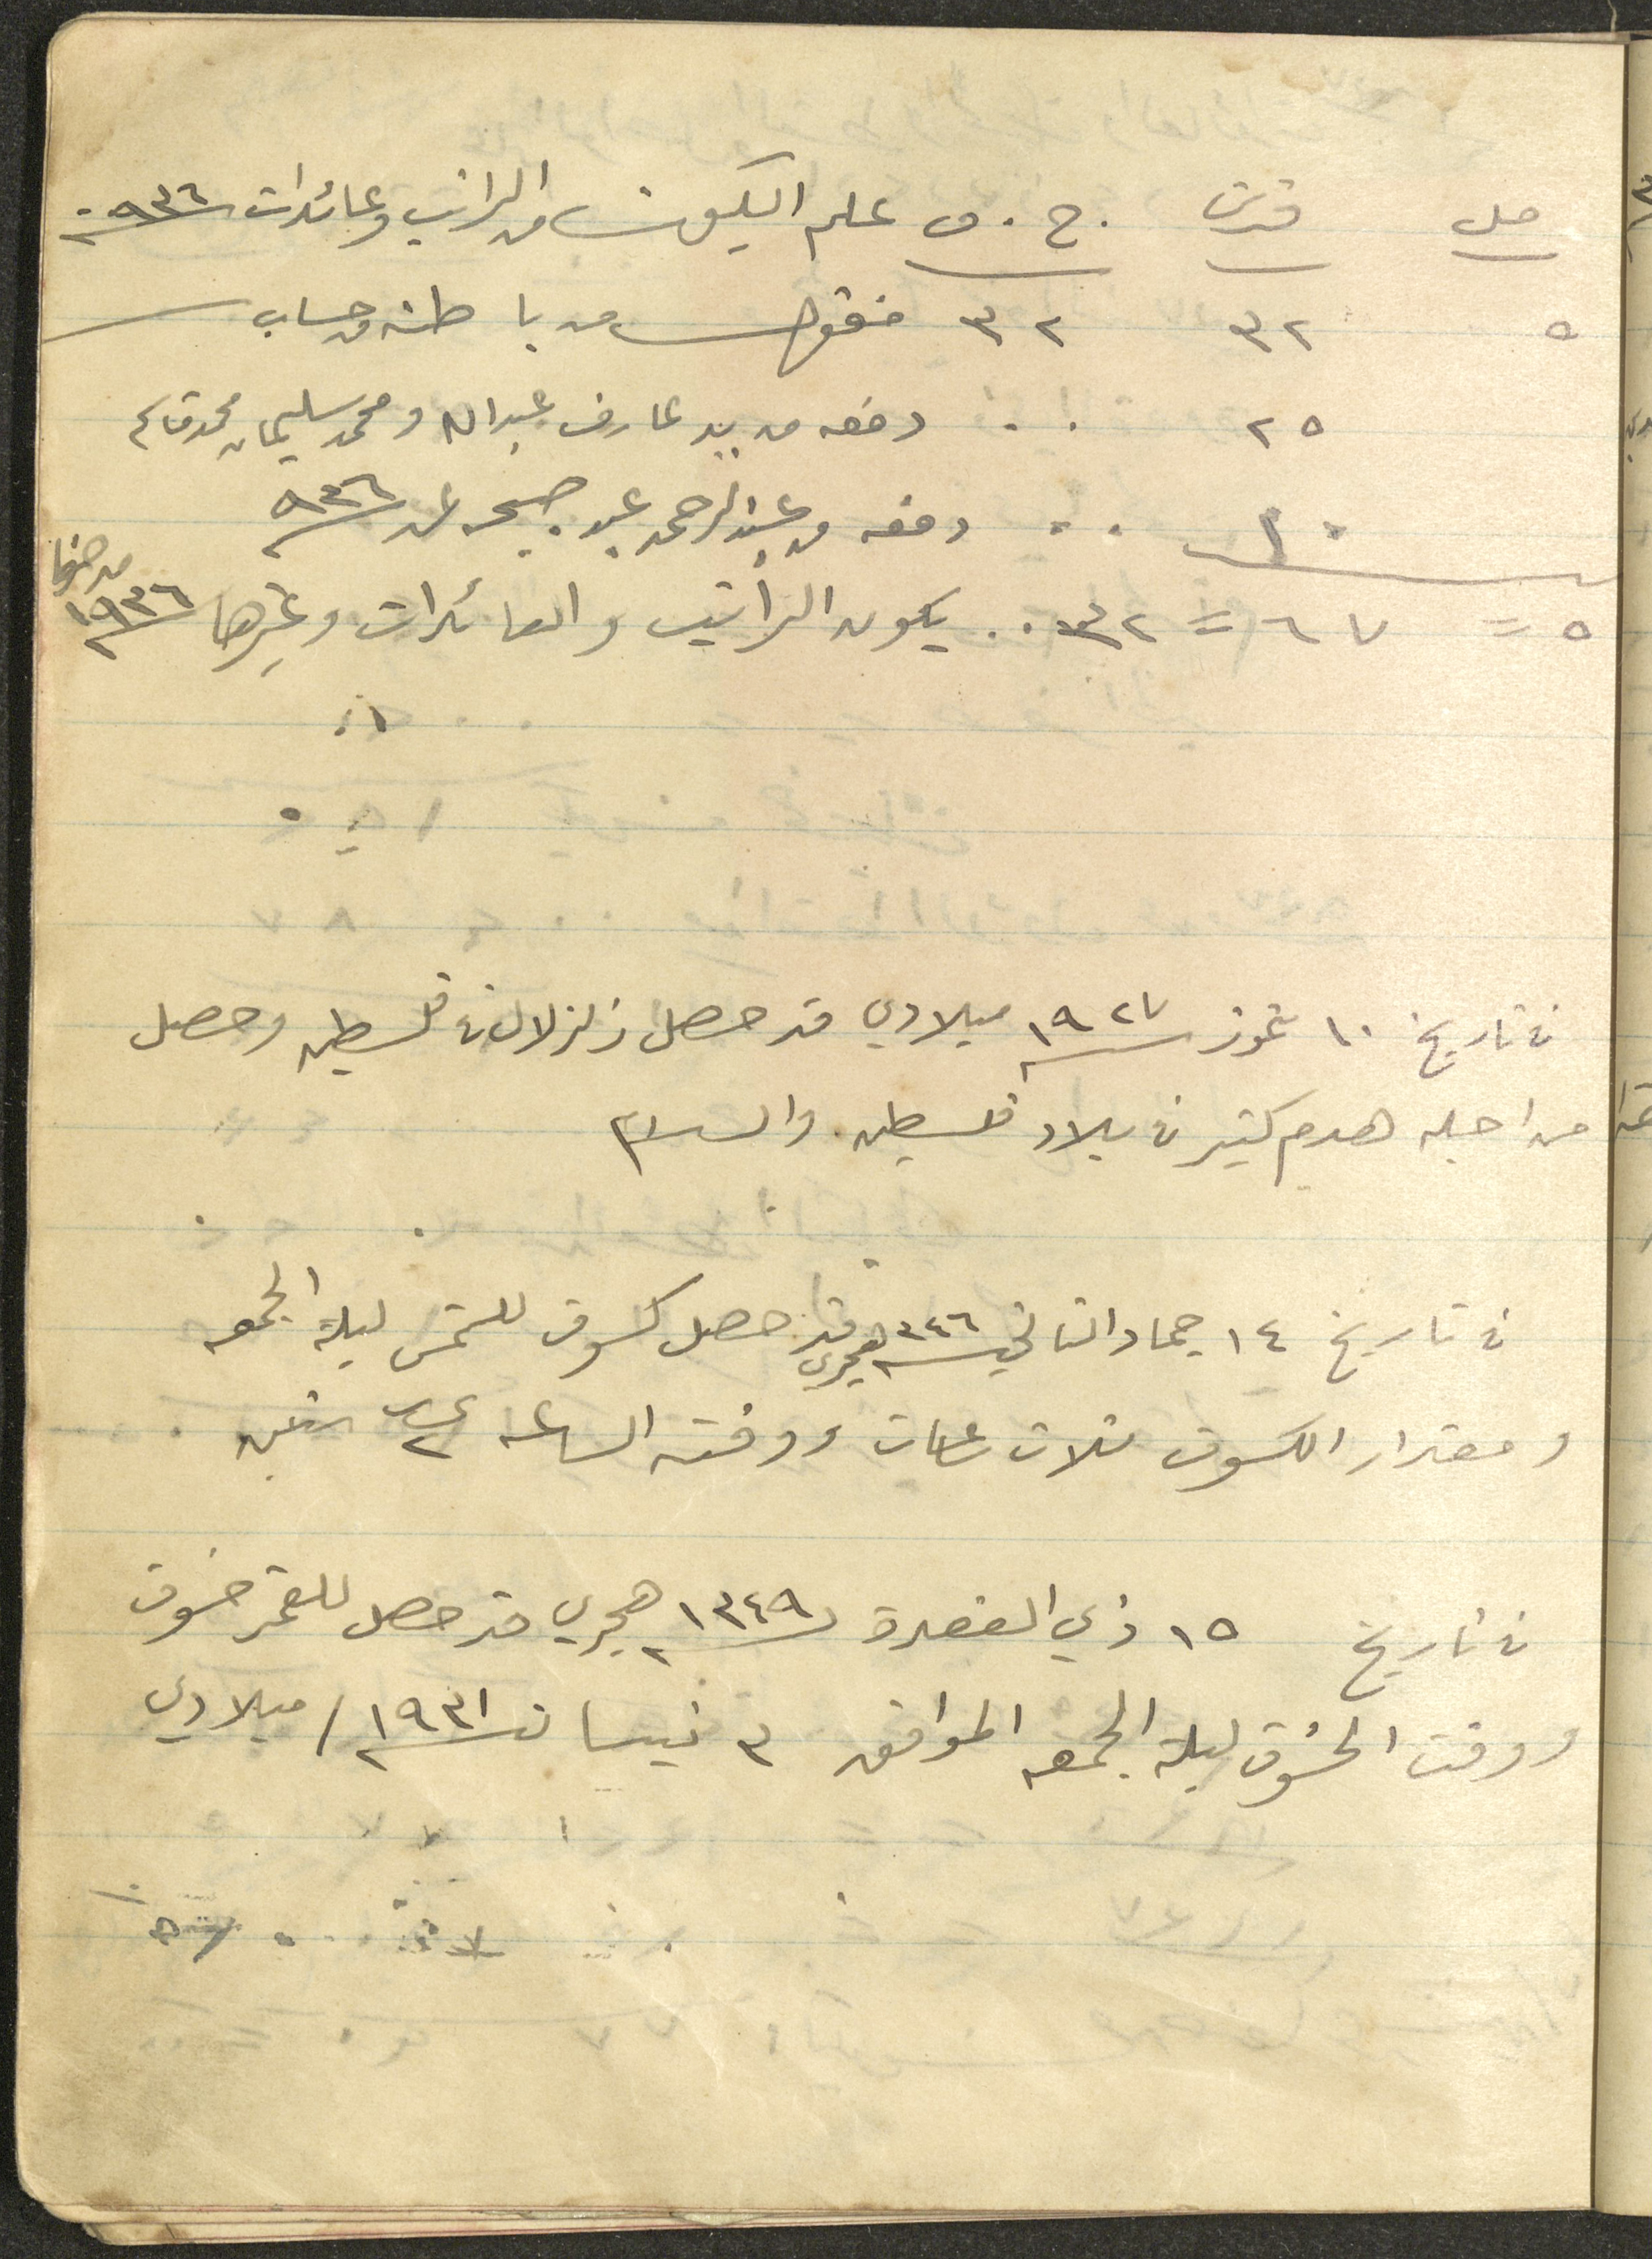 مل قرش ج. ف علم اليكون من الراتب وعائدات ٩٣٦
٥ ٣٢ ٣٢ منقول من باطنه من حساب
٢٥ .. دفعه من يد عارف عبدالله ومحمد سليمان محمد قاسم
١٠ .. دفعه من عبدالرحمن عبد صبح عن ٩٣٦
٥ = ٦٧ = ٣٢ .. يكون الراتب والعائدات وغيرها ١٩٣٦
في تاريخ ١٠ تموز سنة ١٩٢٧ ميلادي قد حصل زلزلال في فلسطين وحصل
من اجله هدم كثير في بلاد فلسطين. والسلام
في تاريخ ١٤ جماد الثاني سنة ٣٤٦ هجري قد حصل كسوف للشمس ليلة الجمعه
ومقدار الكسوف ثلاث ساعات ووقته الساعه
في تاريخ ١٥ ذي القعدة سنة ١٣٤٩ هجري قد حصل للقمر خسوف
ووقت الخسوف ليلة الجمعه الموافق ٣ نيسان سنة ١٩٣١ / ميلادي